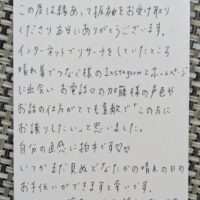 この度は縁あって振袖をお受け取り
くださり本当にありがとうございます。
インターネットでリサーチをしていたところ
晴れ着でつなぐ様のInstagramとホームページ
に出会い お電話口の加藤様の声色や
お話の仕方がとても素敵で"この方に
お譲りしたいっ"と思いました。
自分の直感に拍手です♡♡
いつか まだ見ぬどなたかの晴れの日の
お手伝いができますと幸いです。